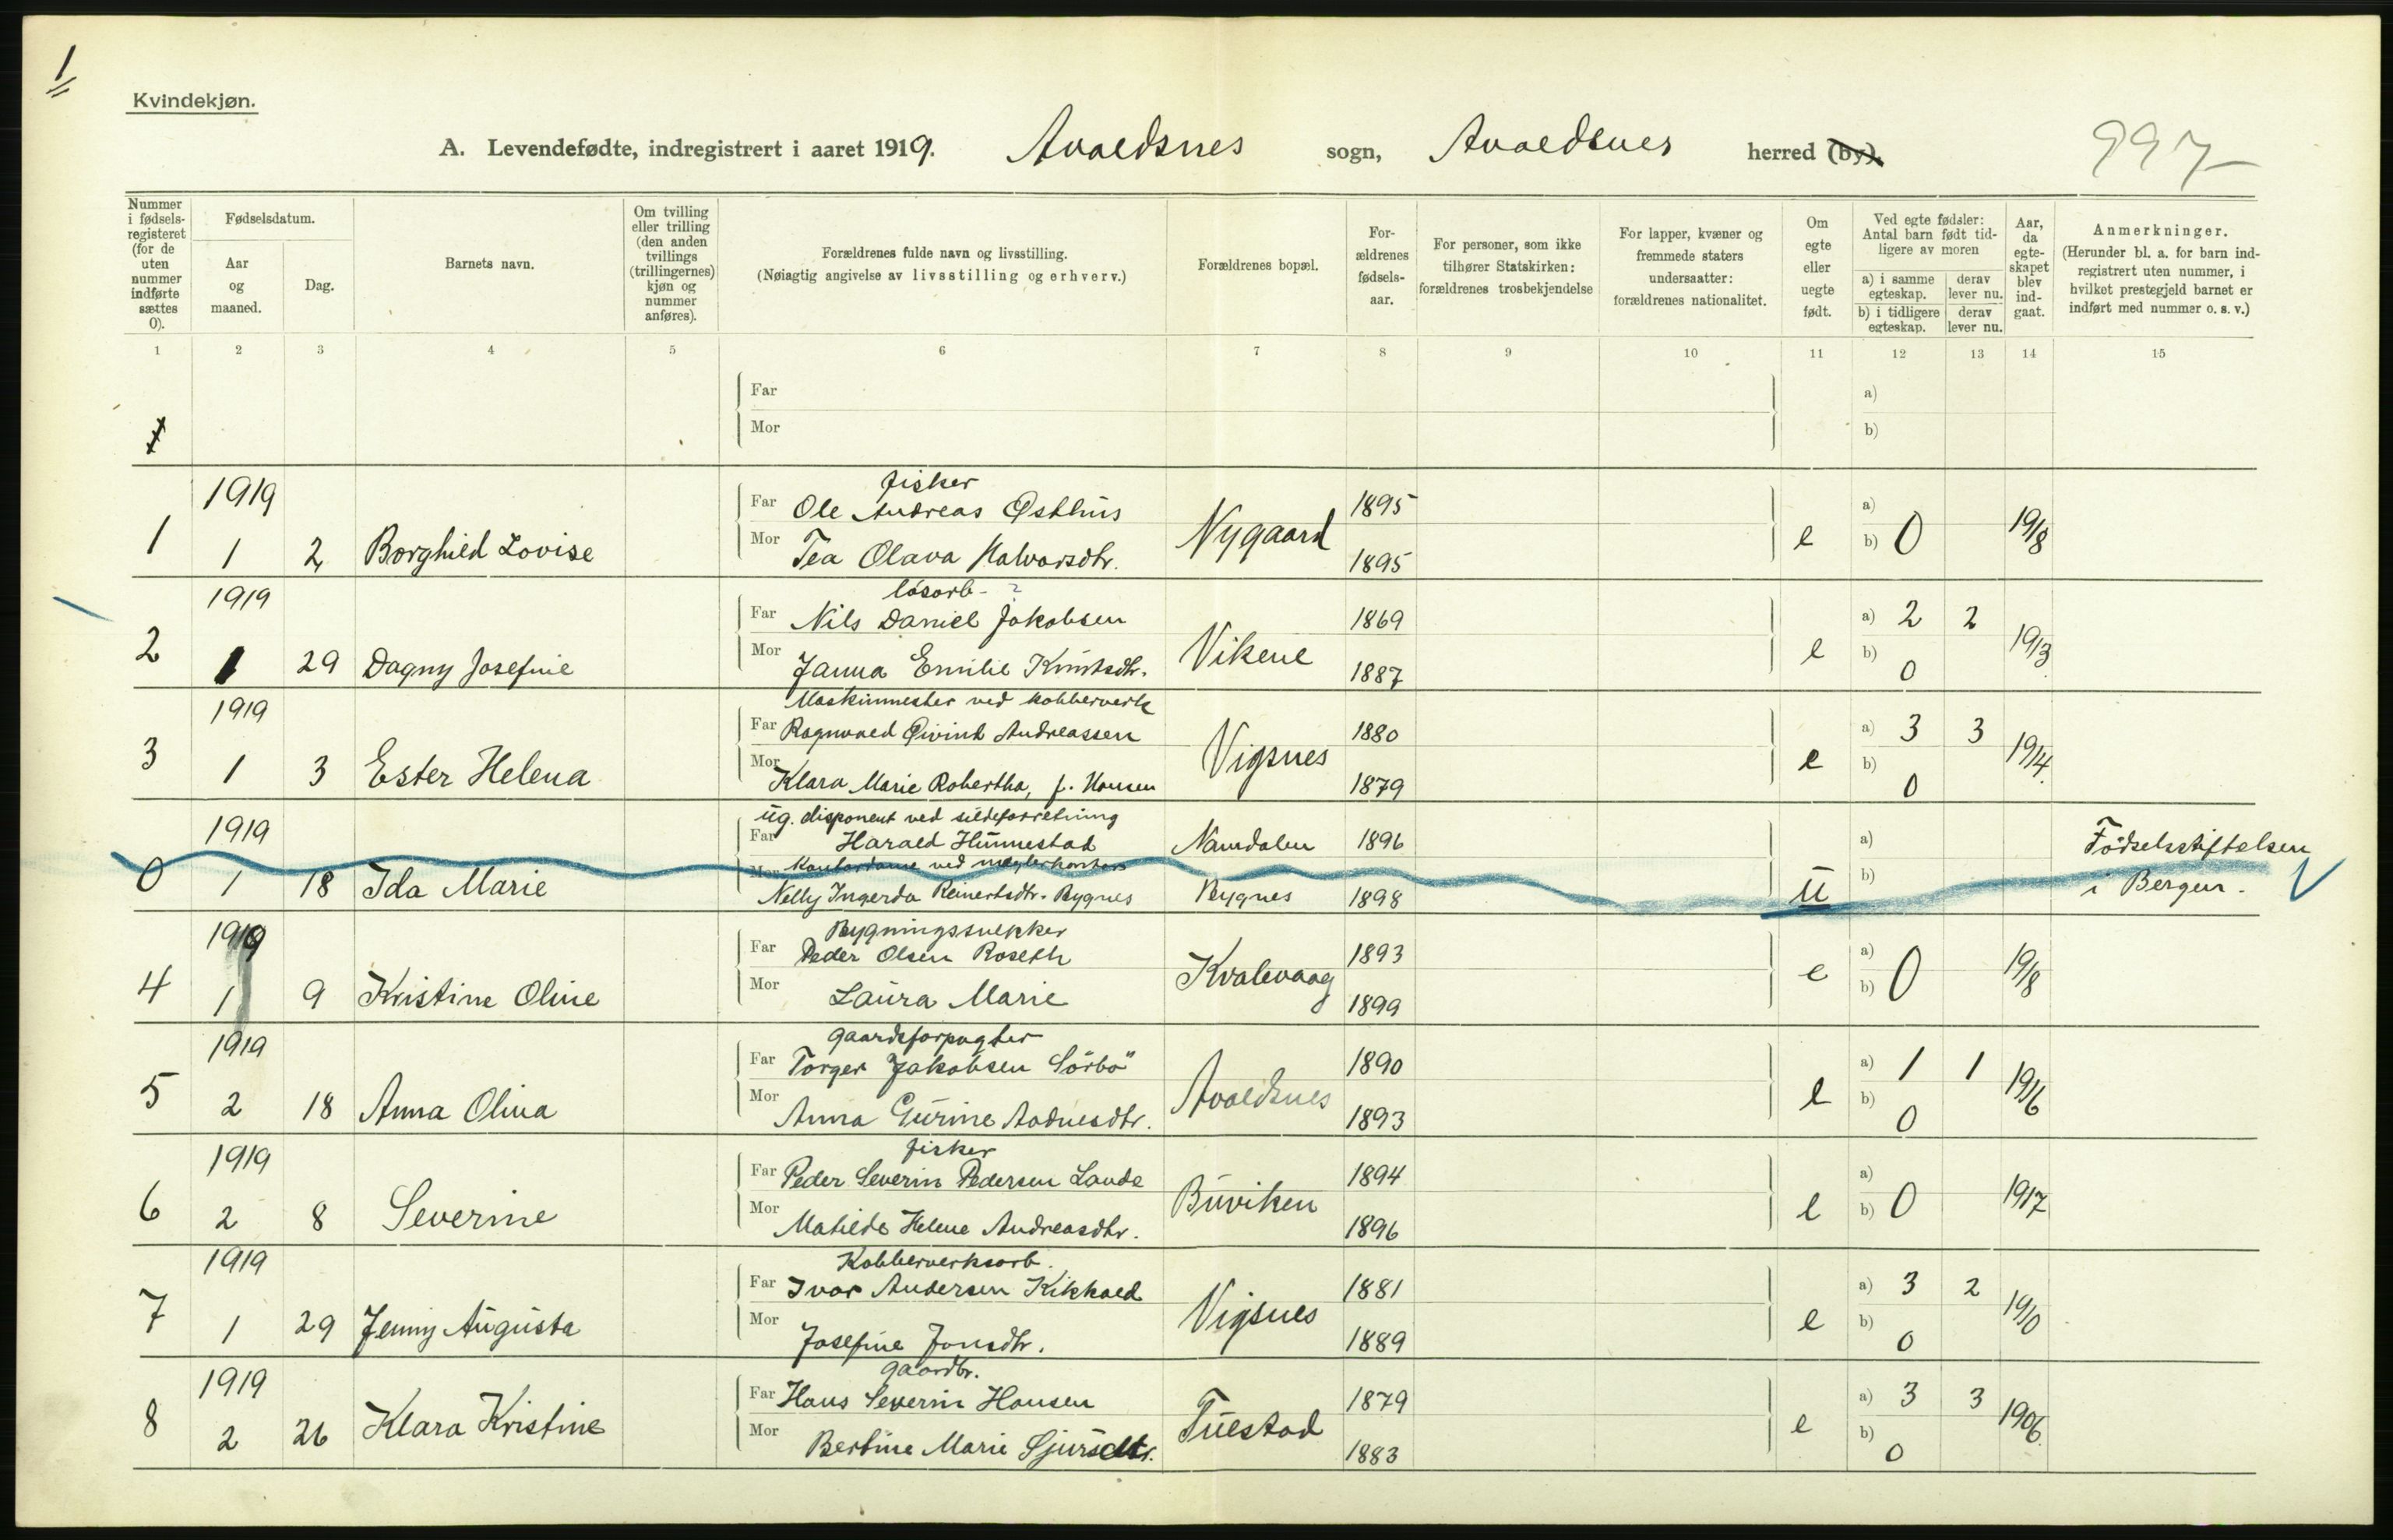 1
Kvindekjøn.
A. Levendefødte, indregistrert i aaret 1919. Avaldsnes sogn, Avaldsnes herred (by).
997
Nummer i fødsels-registeret (for de uten nummer indførte sættes 0).
Fødselsdatum.
Aar og maaned.
Dag.
Barnets navn.
Om tvilling eller trilling (den anden tvillings (trillingernes) kjøn og nummer anføres).
Forældrenes fulde navn og livsstilling.
(Nøiagtig angivelse av livsstilling og erhverv.)
Forældrenes bopæl.
For-ældrenes fødsels-aar.
For personer, som ikke tilhører Statskirken: forældrenes trosbekjendelse
For lapper, kvæner og fremmede staters undersaatter: forældrenes nationalitet.
Om egte eller uegte født.
Ved egte fødsler: Antal barn født tid-ligere av moren
a) i samme egteskap.
derav lever nu.
b) i tidligere egteskap.
derav lever nu.
Aar, da egte-skapet blev ind-gaat.
Anmerkninger.
(Herunder bl. a. for barn ind-registrert uten nummer, i hvilket prestegjeld barnet er indført med nummer o. s. v.)
1 2 3 4 5 6 7 8 9 10 11 12 13 14 15
Far a)
1 Mor b)
1919 fisker
Far Ole Andreas Østhus 1895 a)
1 1 2 Borghild Lovise Nygaard e b) 0 1918
Mor Tea Olava Halvorsdtr. 1895
1919 løsarb - ?
Far Nils Daniel Jakobsen 1869 a) 2 2
2 1 29 Dagny Josefine Vikene e b) 0 1913
Mor Janna Emilie Knutsdtr. 1887
1919 Maskinmester ved kobberverk
Far Ragnvald Øivind Andreassen 1880 a) 3 3
3 1 3 Ester Helena Vigsnes e b) 0 1914.
Mor Klara Marie Robertha, f. Hansen 1879
1919 ug. disponent ved sildeforretning
Far Harald Hummestad Namdalen 1896 a) Fødselsstiftelsen
0 1 18 Ida Marie Mor Kontordame ved meglerkontor u b) i Bergen.
Nelly Ingerda Reinertsdtr. Bygnes Bygnes 1898
1919 Bygningssnekker
Far Peder Olsen Roseth 1893 a)
4 1 9 Kristine Oline Kvalevaag e b) 0 1918
Mor Laura Marie 1899
1919 gaardsforpagter
Far Torger Jakobsen Sörbö 1890 a) 1 1
5 2 18 Anna Olina Avaldsnes e b) 0 1916
Mor Anna Gurine Aadnesdtr. 1893
1919 fisker
Far Peder Severin Pedersen Lande 1894 a)
6 2 8 Severine Buviken e b) 0 1917
Mor Matilde Helene Andreasdtr. 1896
1919 Kobberverksarb.
Far Ivar Andersen Kikkald 1881 a) 3 2
7 1 29 Jenny Augusta Vigsnes e b) 0 1910
Mor Josefine Jonsdtr. 1889
1919 gaardbr.
Far Hans Severin Hansen 1879 a) 3 3
8 2 26 Klara Kristine Tuestad e b) 0 1906.
Mor Bertine Marie Sjursdtr. 1883